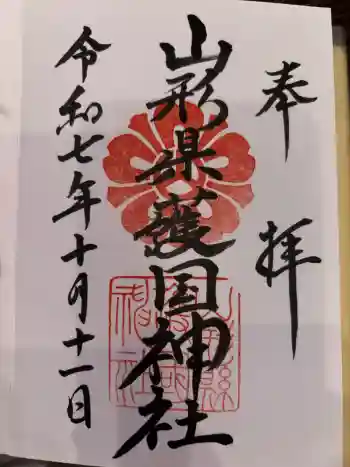 奉拝
山形県護国神社
令和七年十月十一日